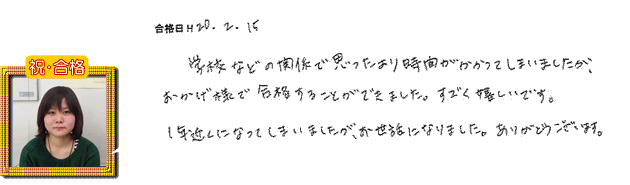 合格日 H20.2.15
祝・合格
学校などの関係で思ったより時間がかかってしまいましたが、
おかげ様で合格することができました。すごく嬉しいです。
1年近くになってしまいましたが、お世話になりました。ありがとうございます。